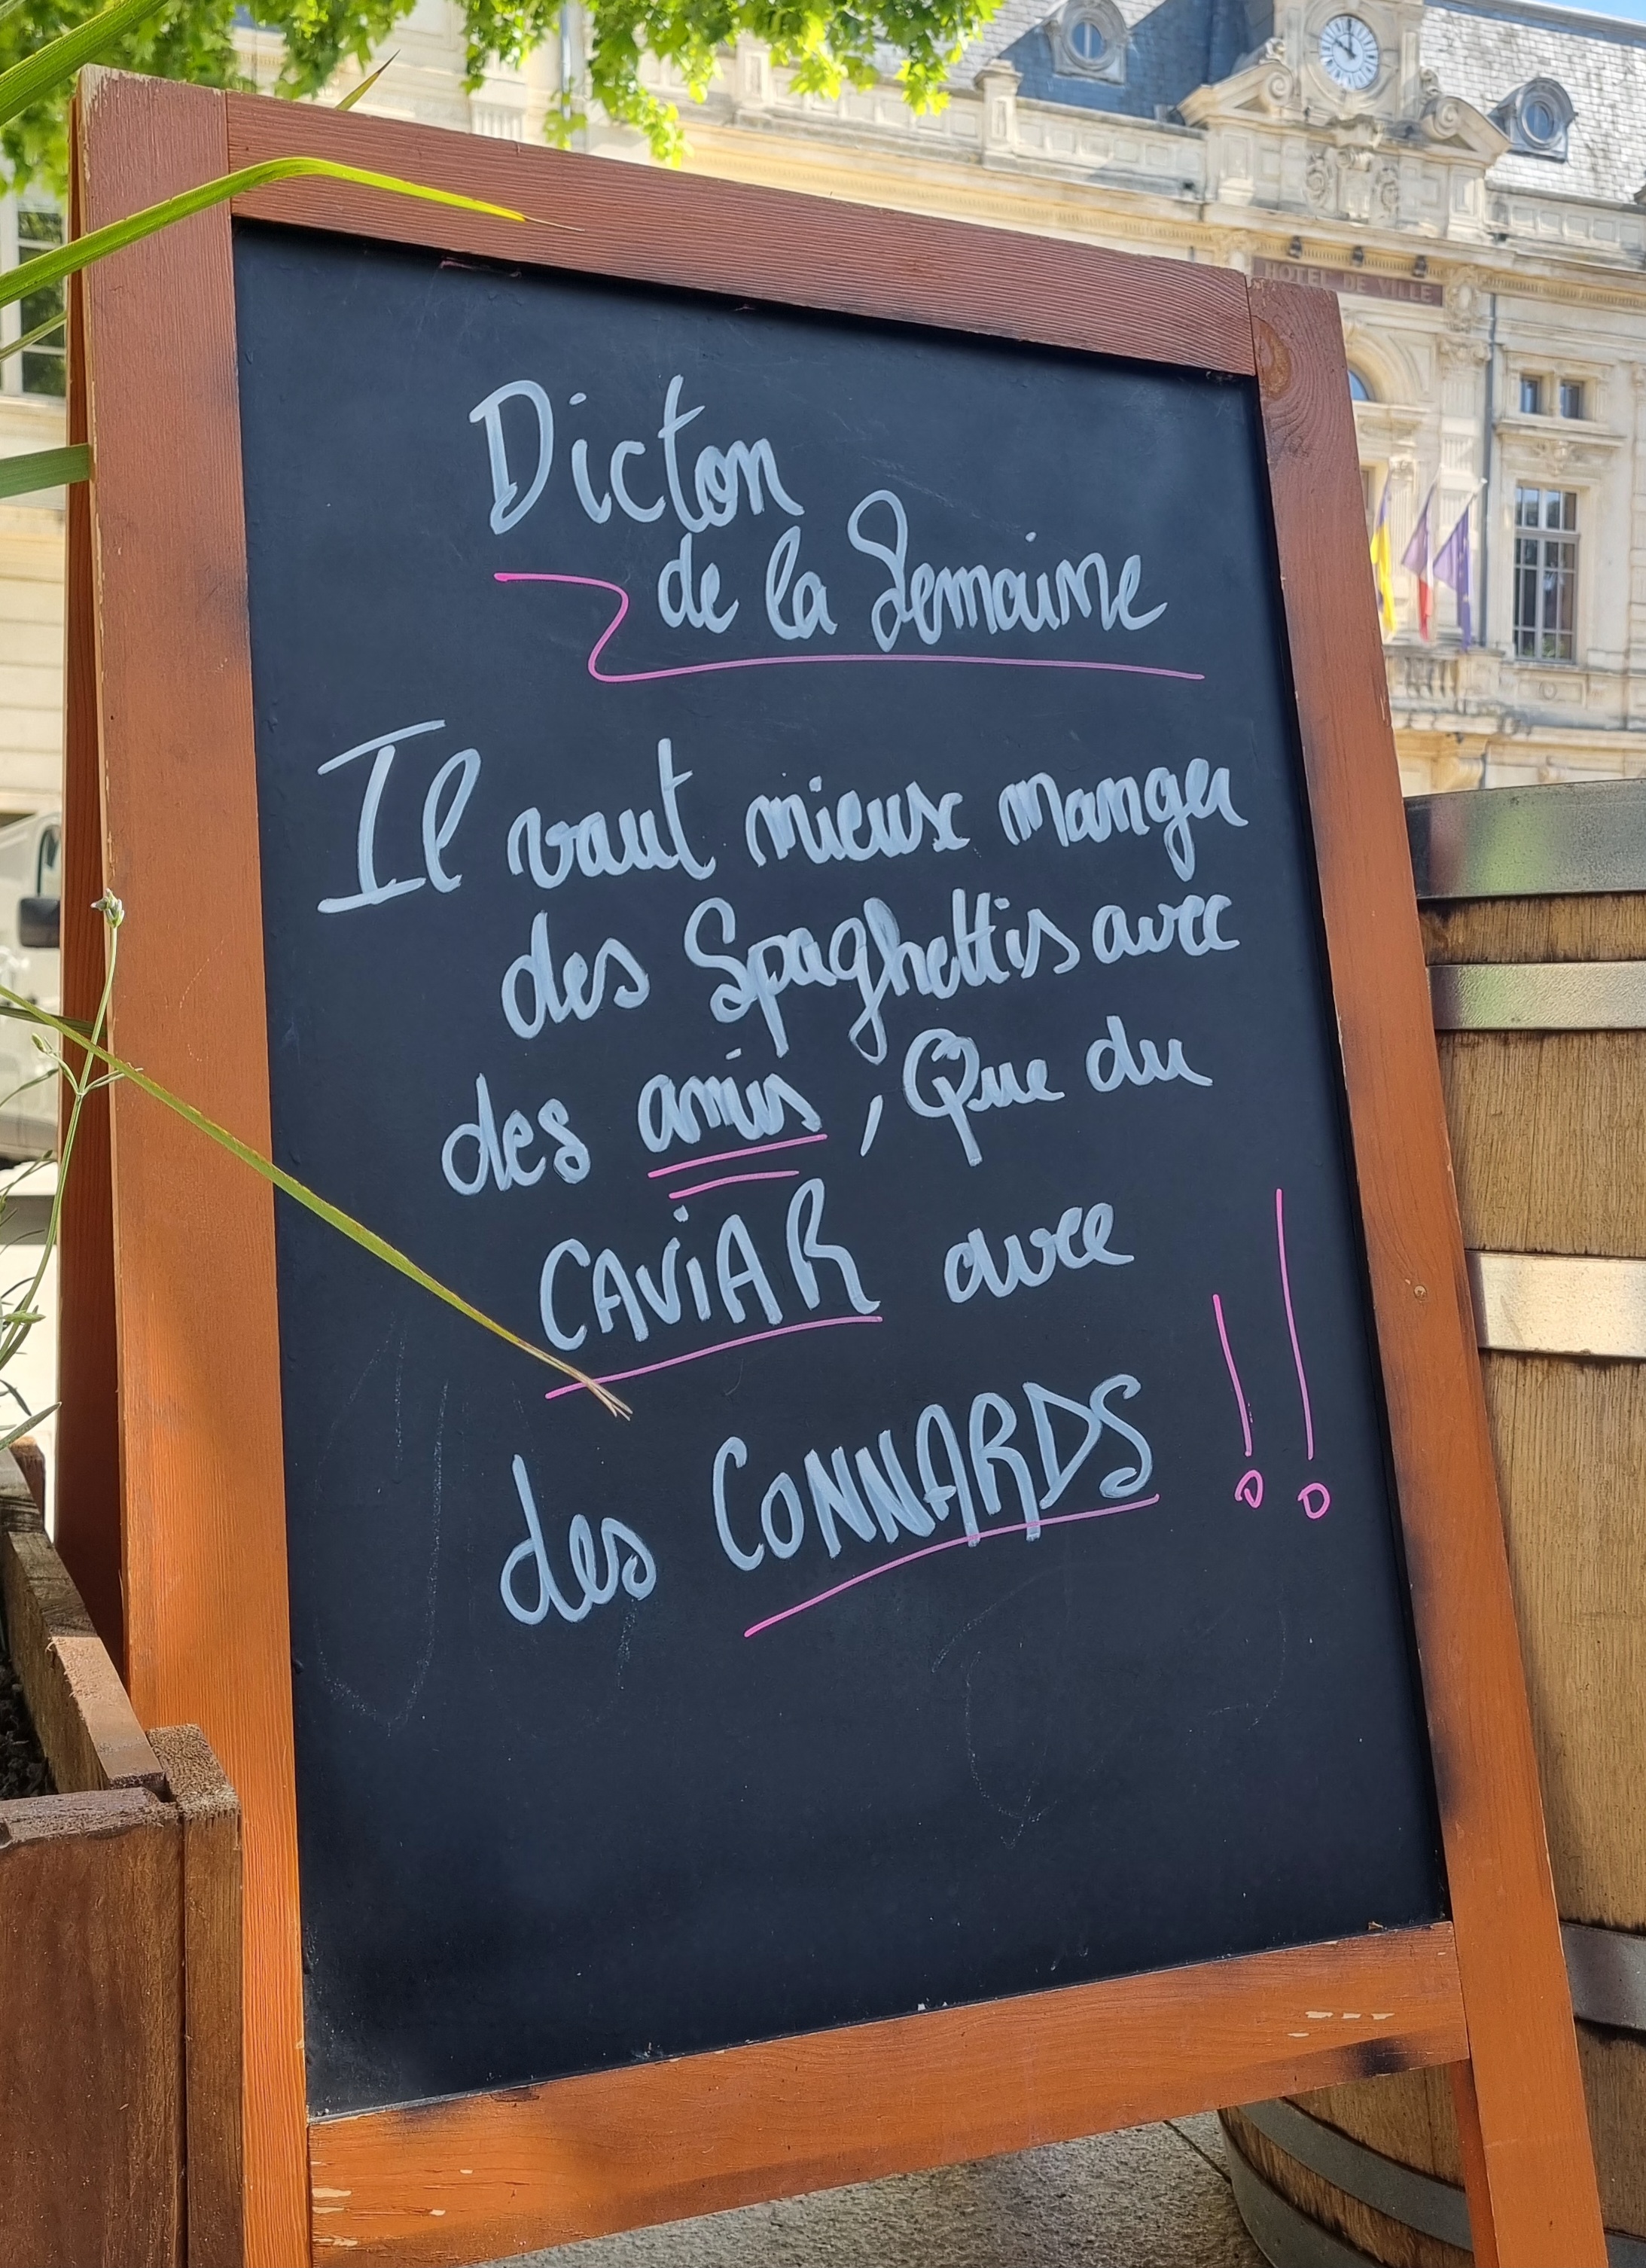 HOTEL DE VILLE
Dicton
de la Semaine
Il vaut mieux manger
des Spaghettis avec
des amis, Que du
CAViAR avec
des CONNARDS !!